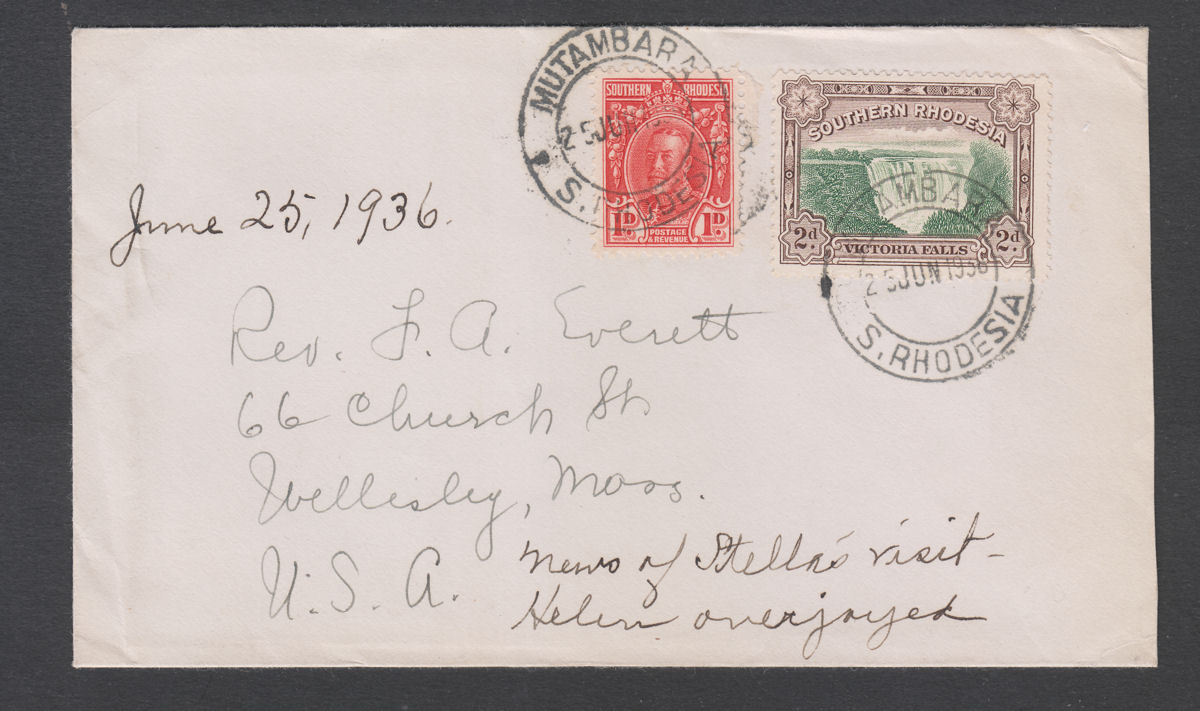 MUTAMBARA
25 JUN
S. RHODESIA
SOUTHERN RHODESIA
1D 1D
POSTAGE
& REVENUE
SOUTHERN RHODESIA
2d 2d
VICTORIA FALLS
AMBAR
25 JUN 1936
S. RHODESIA
June 25, 1936.
Rev. F. A. Everett
66 Church St.
Wellesley, Mass.
U. S. A.
News of Stella's visit -
Helen overjoyed